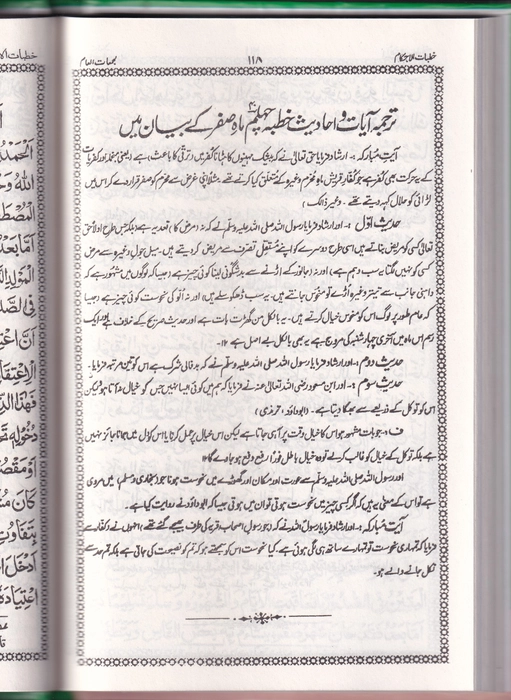 خطبات الاحکام
۱۱۸
ترجمہ آیات و احادیث خطبہ چہلم ماہِ صفر کے بیان میں
آیت مبارکہ :۔ ارشاد فرمایا حق تعالیٰ نے کہ بیشک مہینوں کا ہٹانا کفر میں ترقی کا باعث ہے (یعنی منجملہ اور کفریات
کے یہ حرکت بھی کفر ہے جو کفارِ قریش ماہ محرم وغیرہ کے متعلق کیا کرتے تھے مثلاً اپنی غرض سے محرم کو صفر قرار دے کر اس میں
لڑائی کو حلال کہہ دیتے تھے۔ وغیر ذالک)
حدیث اوّل :۔ اور ارشاد فرمایا رسول اللہ صلی اللہ علیہ وسلم نے کہ نہ (مرض کا) تعدیہ ہے (بلکہ جس طرح اولاً حق
تعالیٰ کسی کو مریض بناتے ہیں اسی طرح دوسرے کو اپنے مستقل تصرف سے مریض کر دیتے ہیں۔ میل جول وغیرہ سے مرض
کسی کو نہیں لگتا یہ سب وہم ہے) اور نہ (جانور کے اڑنے سے بدشگونی لینا کوئی چیز ہے (جیسا کہ لوگوں میں مشہور ہے کہ
داہنی جانب سے تیتر وغیرہ اڑے تو منحوس جانتے ہیں۔ یہ سب ڈھکوسلے ہیں) اور نہ اُلو کی نحوست کوئی چیز ہے (جیسا
کہ عام طور پر لوگ اس کو منحوس خیال کرتے ہیں۔ یہ بالکل من گھڑت بات ہے اور حدیث صریح کے خلاف ہے اور ایک
رسم اس ماہ میں آخری چہارشنبہ کی مروج ہے یہ بھی بالکل بے اصل ہے۔
حدیث دوم :۔ اور ارشاد فرمایا رسول اللہ صلی اللہ علیہ وسلم نے کہ بدفالی شرک ہے اس کو تین مرتبہ فرمایا۔
حدیث سوم :۔ اور ابن مسعود رضی اللہ تعالیٰ عنہ نے فرمایا کہ ہم میں کوئی ایسا نہیں جس کو خیال نہ آتا ہو لیکن
اس کو توکل کے ذریعے سے بھگا دیتا ہے۔ (ابوداؤد، ترمذی)
ف :۔ جو بات مشہور ہو اس کا خیال وقت پر آ ہی جاتا ہے لیکن اس خیال پر عمل کرنا یا اس کو دل میں جمانا جائز نہیں
ہے بلکہ توکل کے خیال کو غالب کرلے تو وہ خیال باطل فوراً رفع دفع ہو جاوے گا
اور رسول اللہ صلی اللہ علیہ وسلم سے عورت اور مکان اور گھوڑے میں نحوست ہونا جو (بخاری و مسلم) میں مروی
ہے تو اس کے معنی یہ ہیں کہ اگر کسی چیز میں نحوست ہوتی تو ان میں ہوتی جیسا کہ ابوداؤد نے روایت کیا ہے۔
آیت مبارکہ :۔ اور ارشاد فرمایا رسول اللہ نے کہ (جو رسول اصحاب قریہ کی طرف بھیجے گئے تھے) انہوں نے (کفار سے)
فرمایا کہ تمہاری نحوست تو تمہارے ساتھ ہی لگی ہوئی ہے۔ کیا نحوست اس کو سمجھتے ہو کہ تم کو نصیحت کی جاتی ہے بلکہ تم حد سے
نکل جانے والے ہو۔